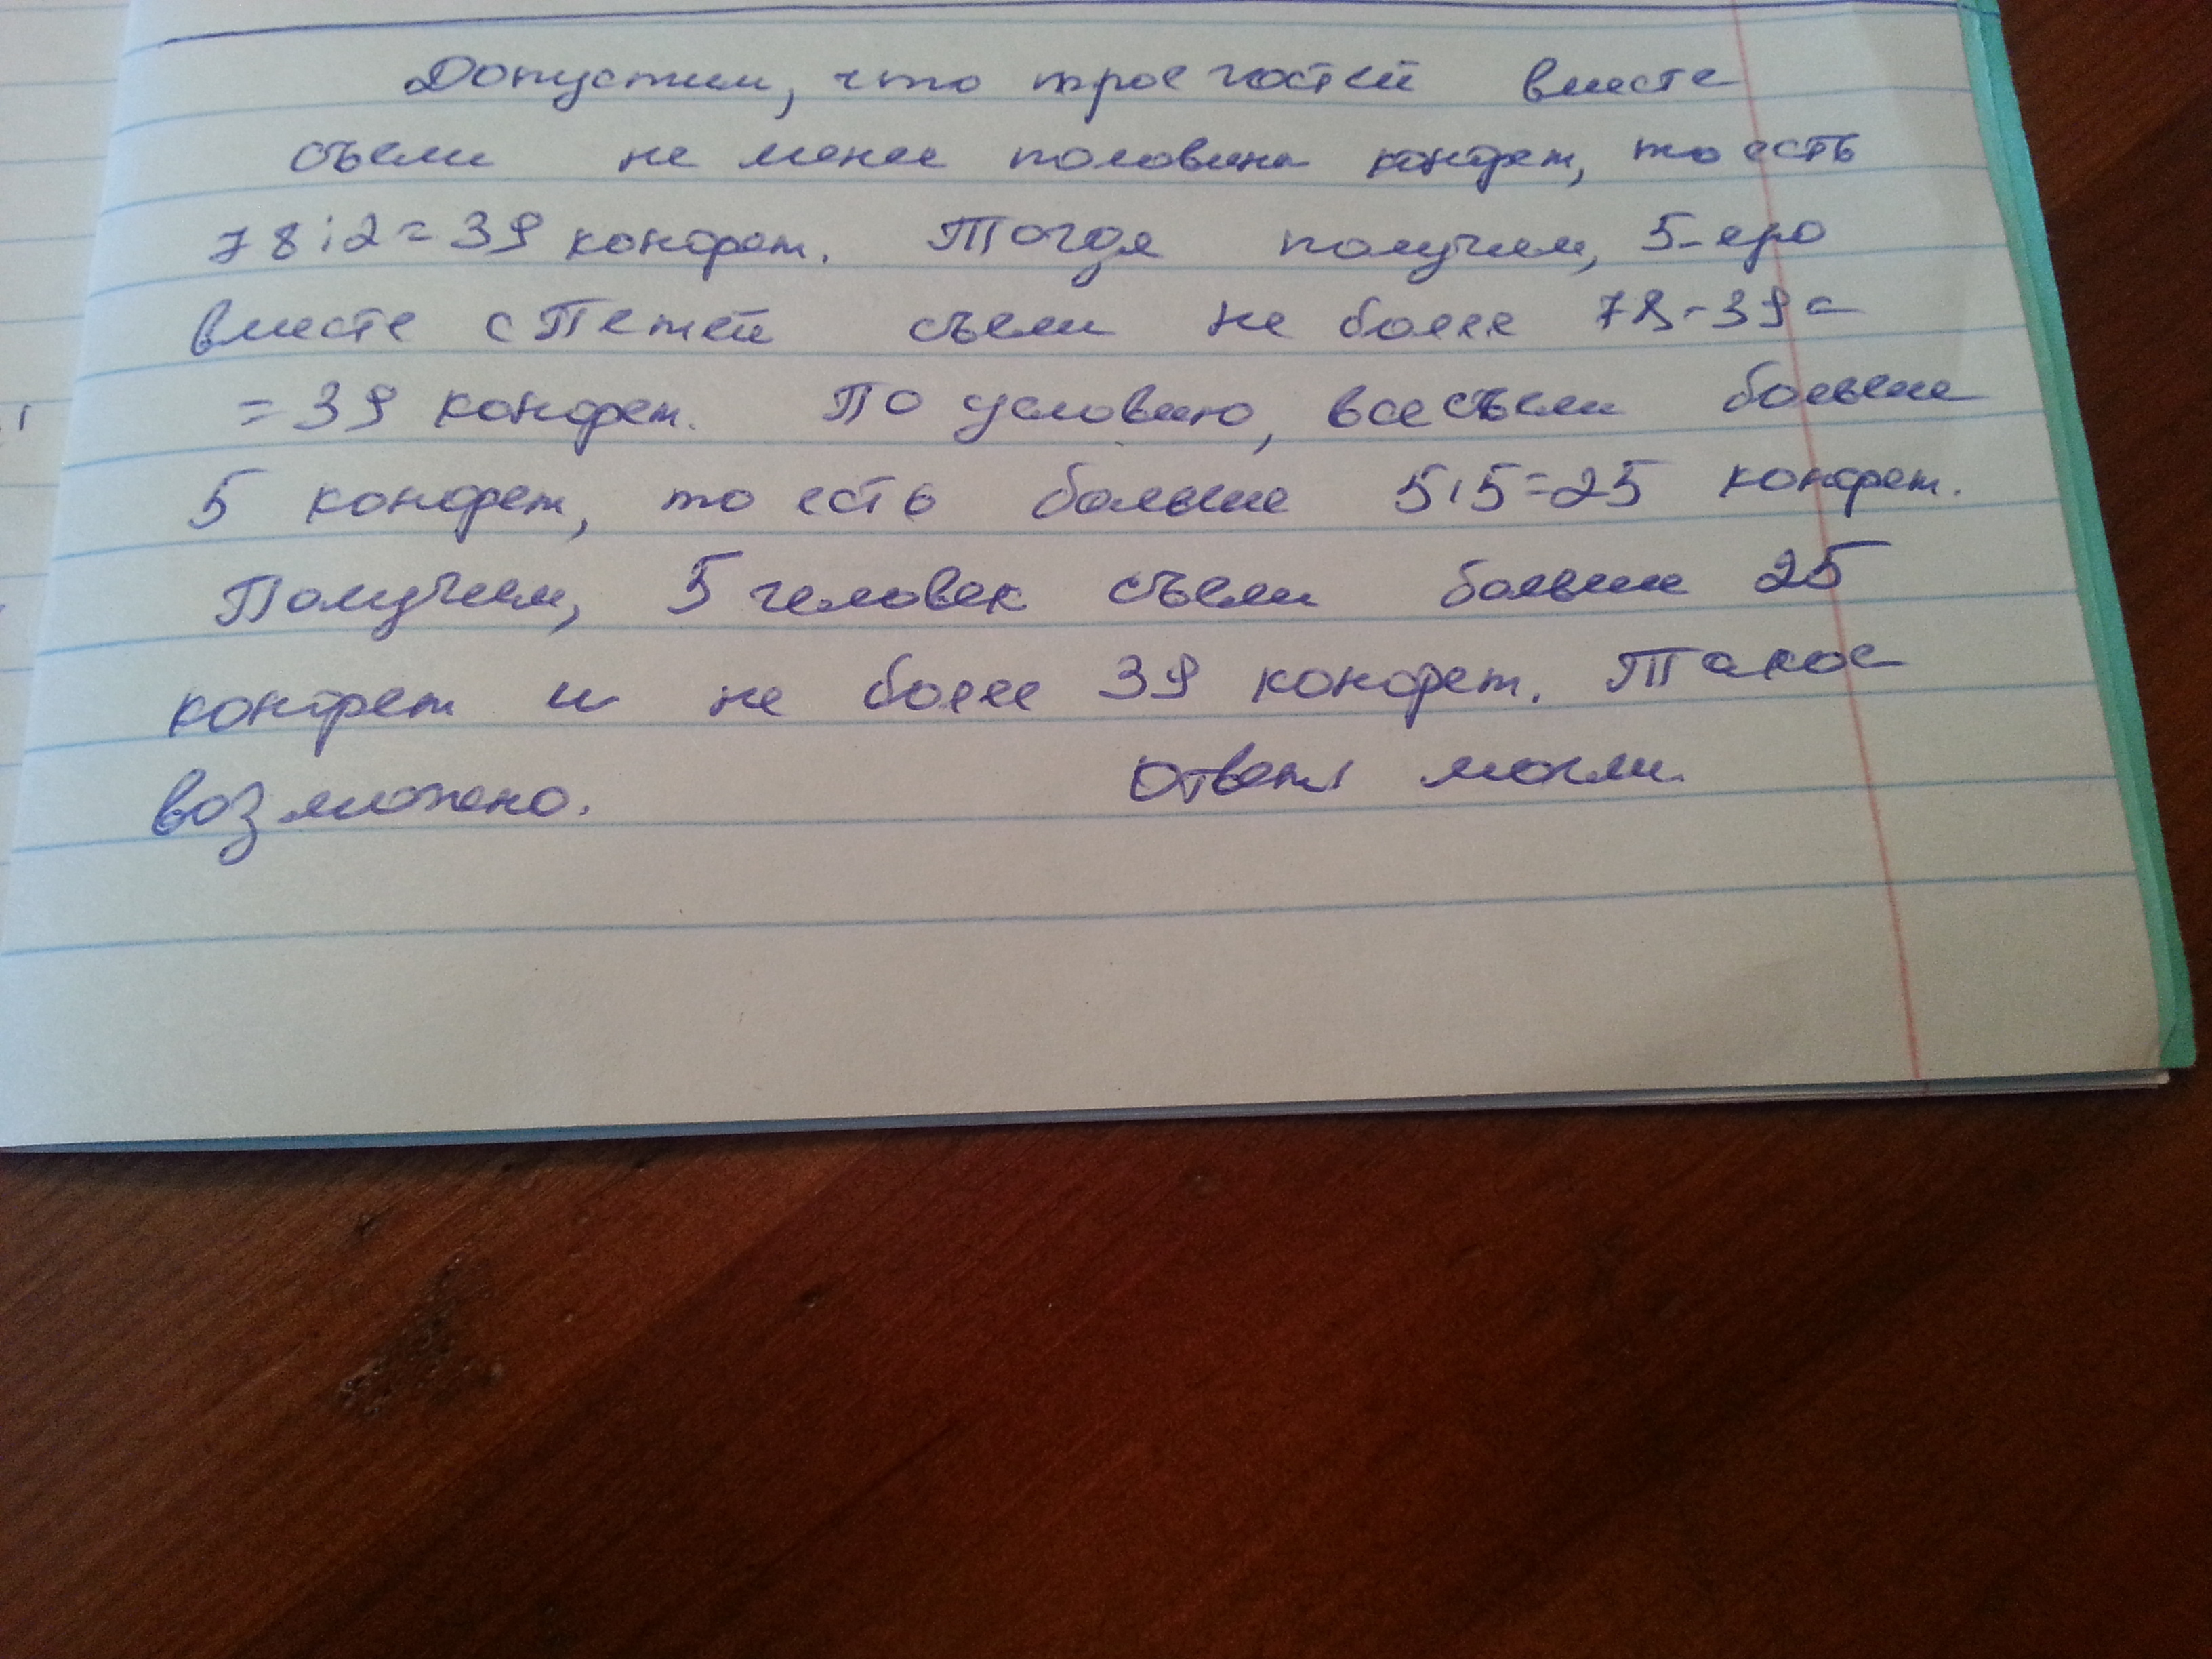 Допустим, что трое гостей вместе
съели не менее половины конфет, то есть
78:2=39 конфет. Тогда получим, 5-еро
вместе с Петей съели не более 78-39=
=39 конфет. По условию, все съели больше
5 конфет, то есть больше 5·5=25 конфет.
Получим, 5 человек съели больше 25
конфет и не более 39 конфет. Такое
возможно. Ответ: могли.